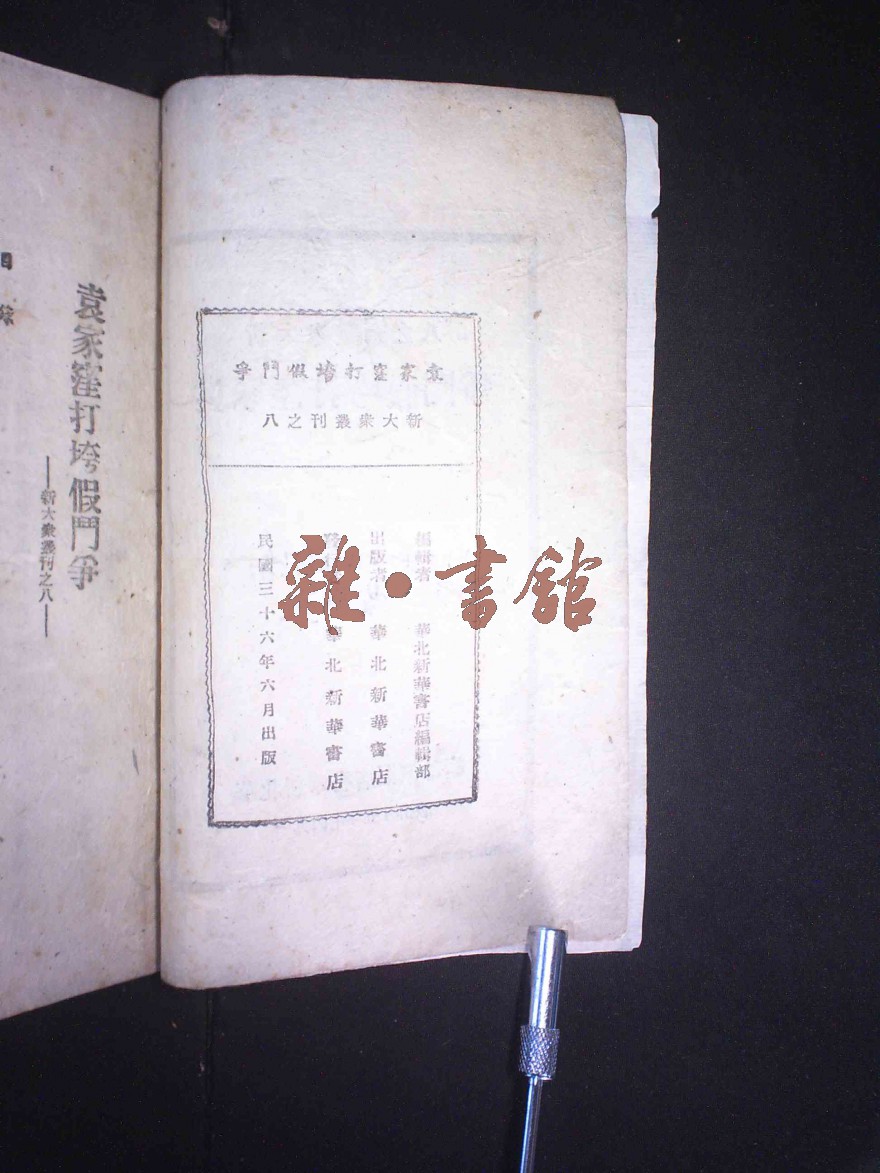 袁家窪打垮假鬥爭
新大衆叢刊之八
編輯者 華北新華書店編輯部
出版者 華北新華書店
華北新華書店
民國三十六年六月出版
袁家窪打垮假鬥爭
——新大衆叢刊之八——
目錄
雜·書館